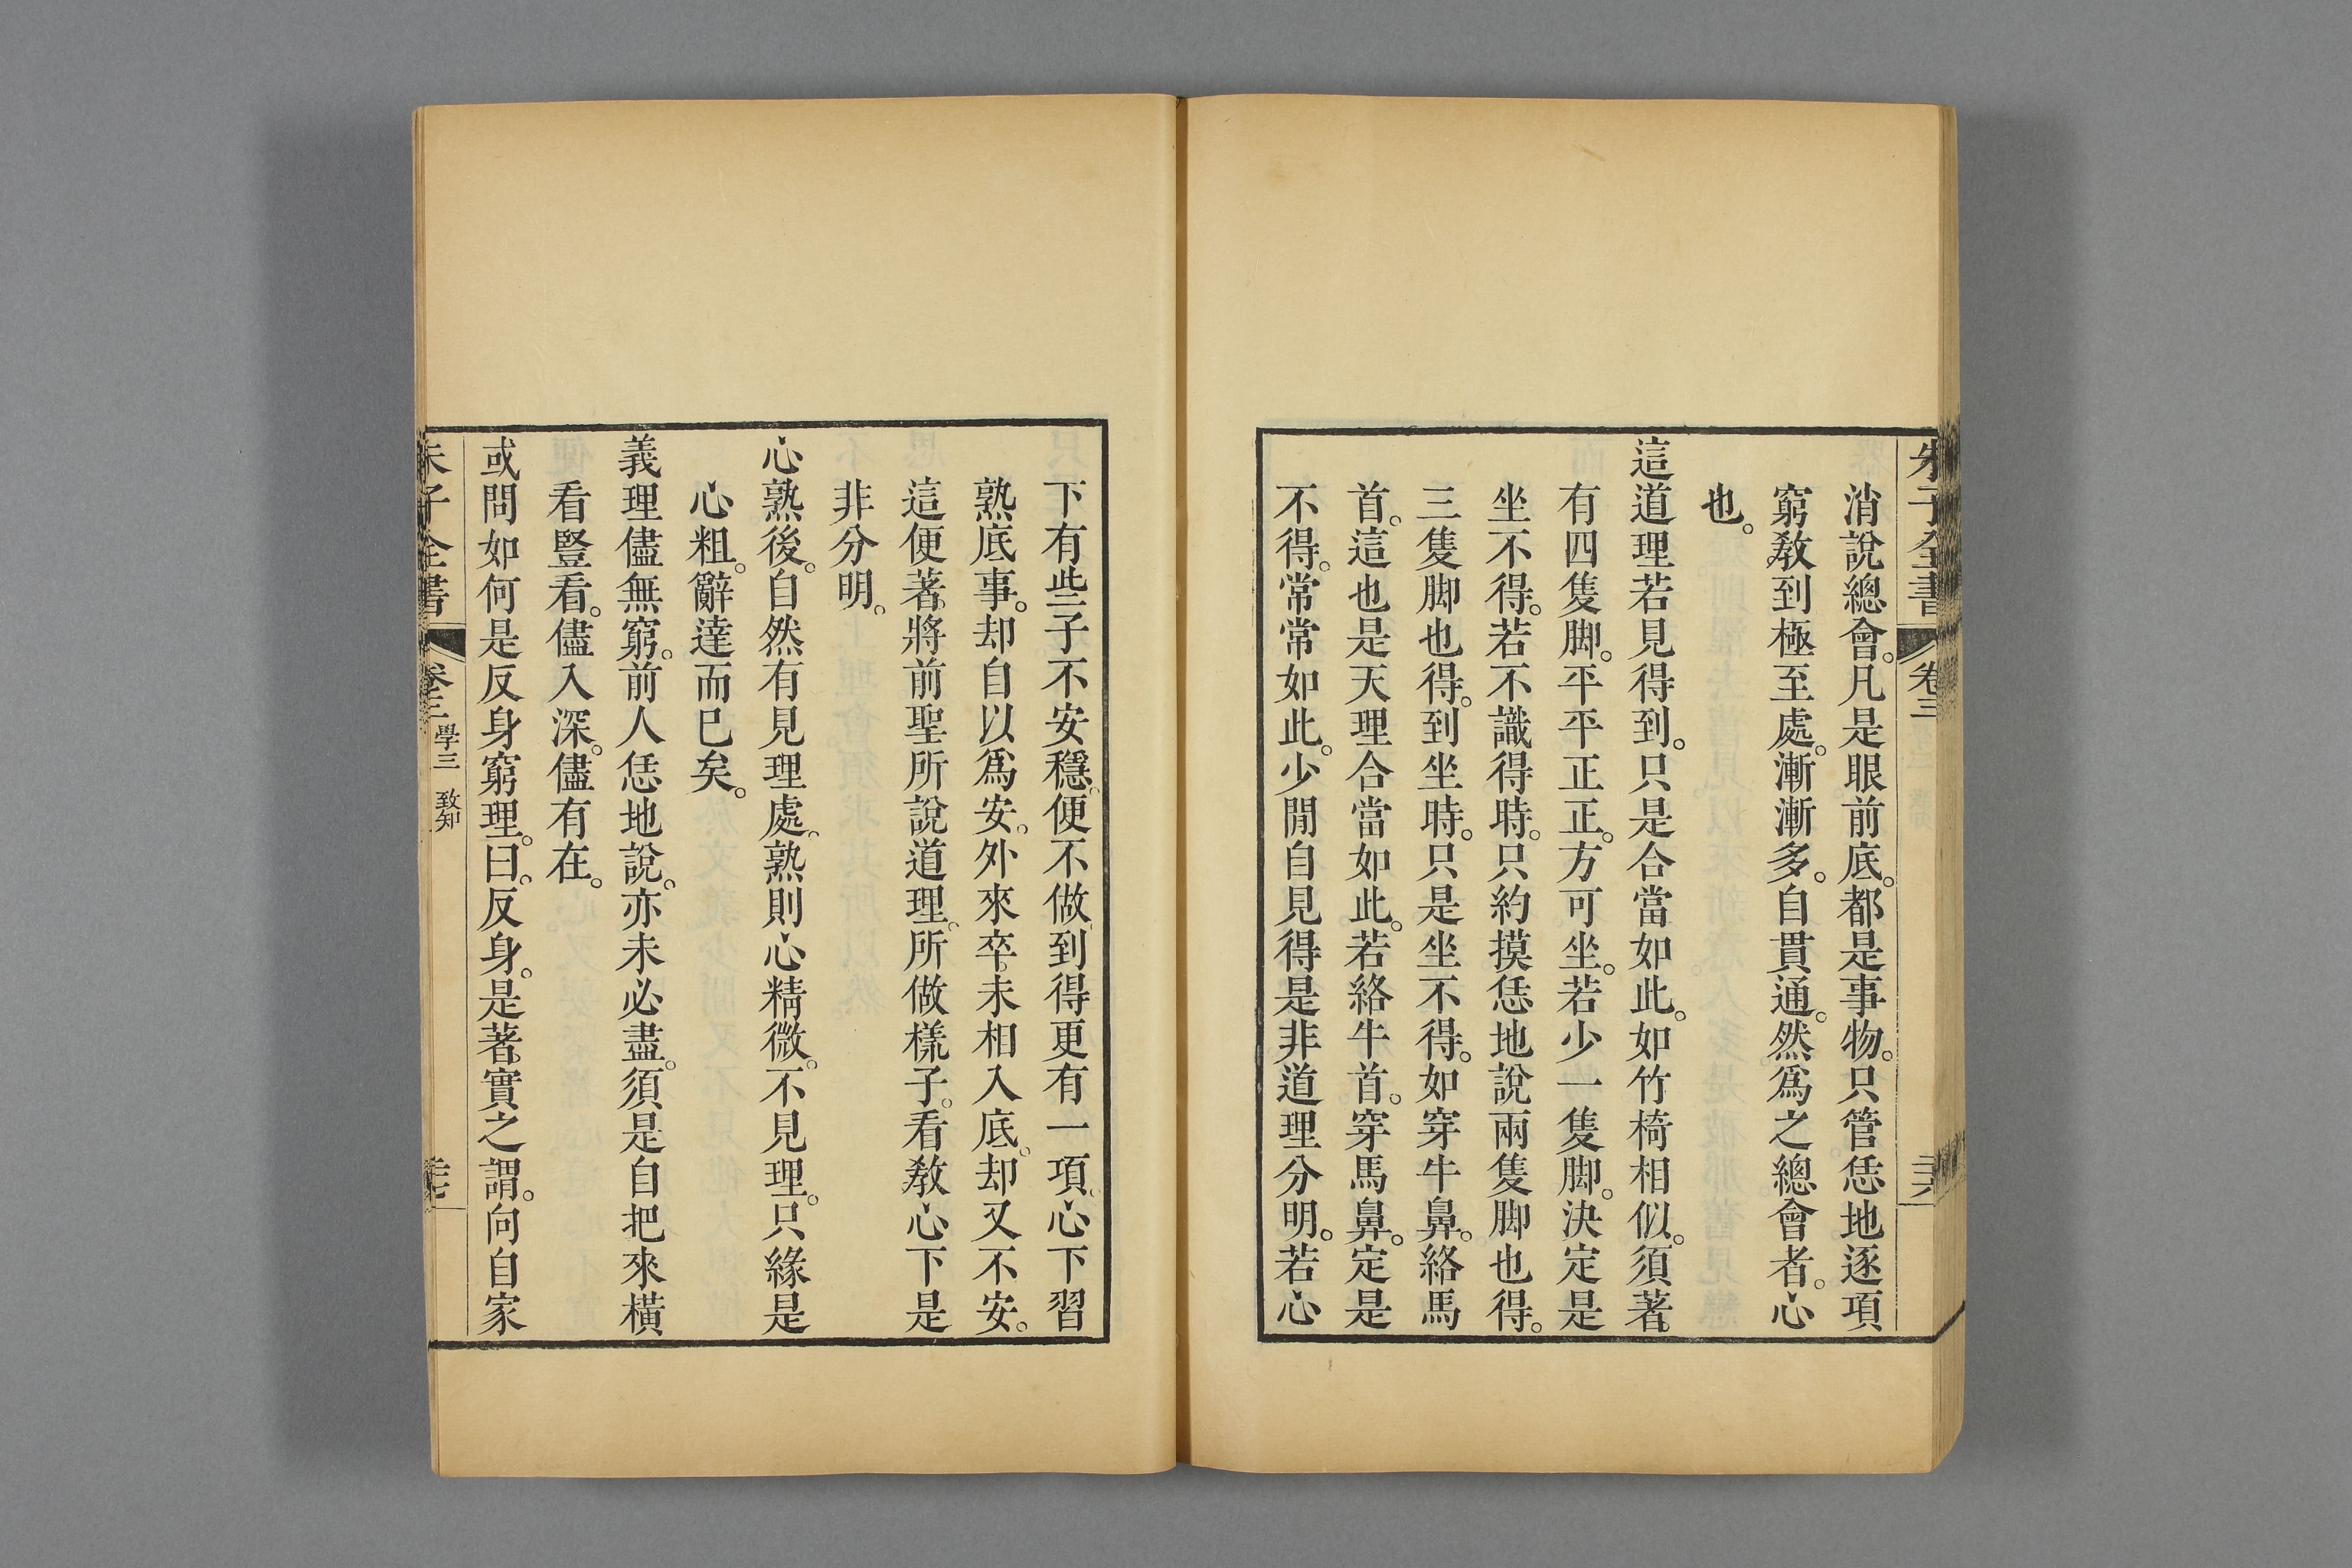 朱子全書 卷三 三六
消說總會。凡是眼前底。都是事物。只管恁地逐項
窮敎到極至處。漸漸多。自貫通。然爲之總會者。心
也。
這道理若見得到。只是合當如此。如竹椅相似。須著
有四隻脚。平平正正。方可坐。若少一隻脚。決定是
坐不得。若不識得時。只約摸恁地說兩隻脚也得。
三隻脚也得。到坐時。只是坐不得。如穿牛鼻。絡馬
首。這也是天理合當如此。若絡牛首。穿馬鼻。定是
不得。常常如此。少閒自見得是非道理分明。若心
下有些子不安穩。便不做到得更有一項。心下習
熟底事。却自以爲安。外來卒未相入底。却又不安。
這便著將前聖所說道理。所做樣子。看敎心下是
非分明。
心熟後。自然有見理處。熟則心精微。不見理。只緣是
心粗。辭達而已矣。
義理儘無窮。前人恁地說。亦未必盡。須是自把來橫
看豎看。儘入深。儘有在。
或問如何是反身窮理。曰。反身。是著實之謂。向自家
朱子全書 卷三 學三 致知